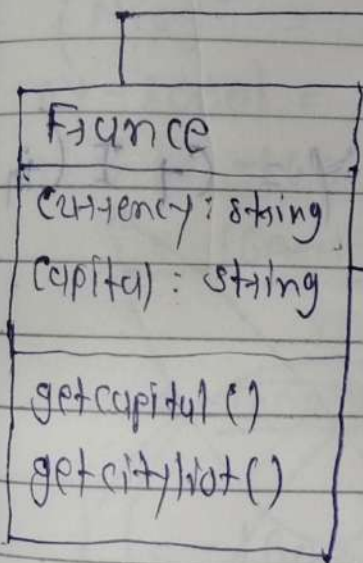 France
Currency: string
Capital: string
getcapital()
getcitylist()